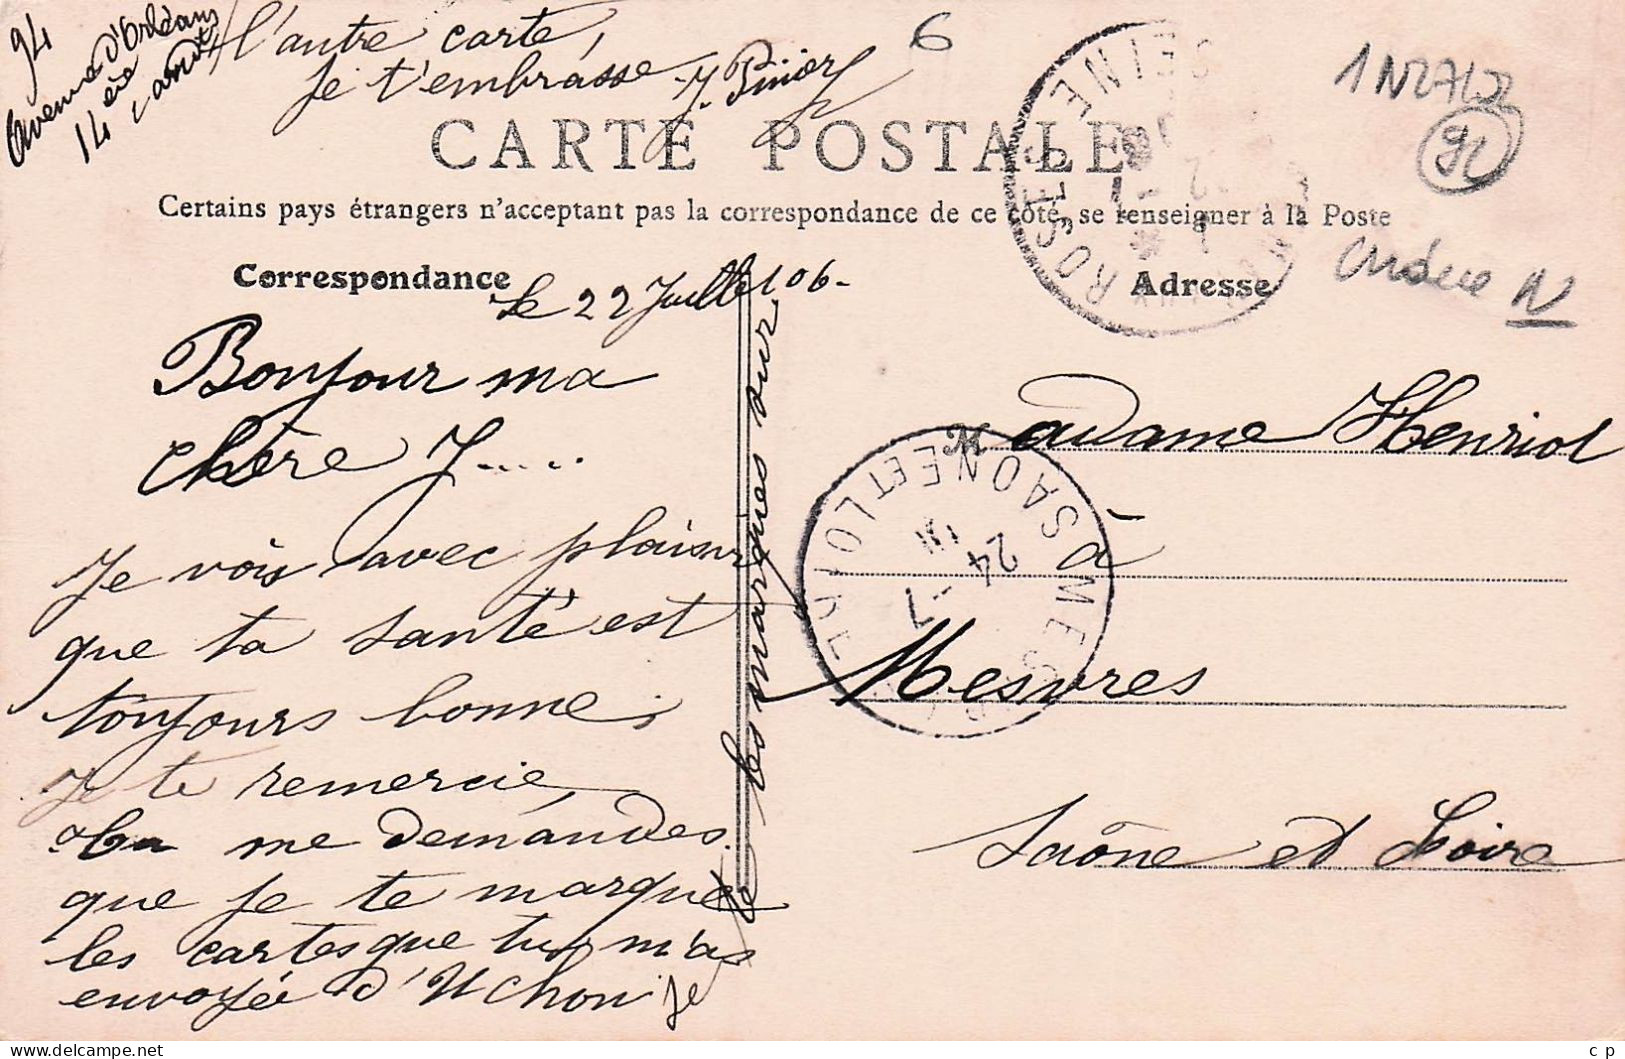 94
Avenue d'Orléans
14 ère
l'autre carte,
Je t'embrasse
6
92
CARTE POSTALE
Certains pays étrangers n'acceptent pas la correspondance de ce côté, se renseigner à la Poste
Correspondance
Adresse
Le 22 Juillet 06.
Bonjour ma
chère J.....
Je vois avec plaisir
que ta santé est
toujours bonne,
Je te remercie,
me demandes
que je te marque
les cartes que tu m'as
envoyée d'Uchon je
te
les marques sur
Madame Henriot
à
Mesvres
Saône et Loire
SEINE
24 -7
SAONE ET LOIRE
N